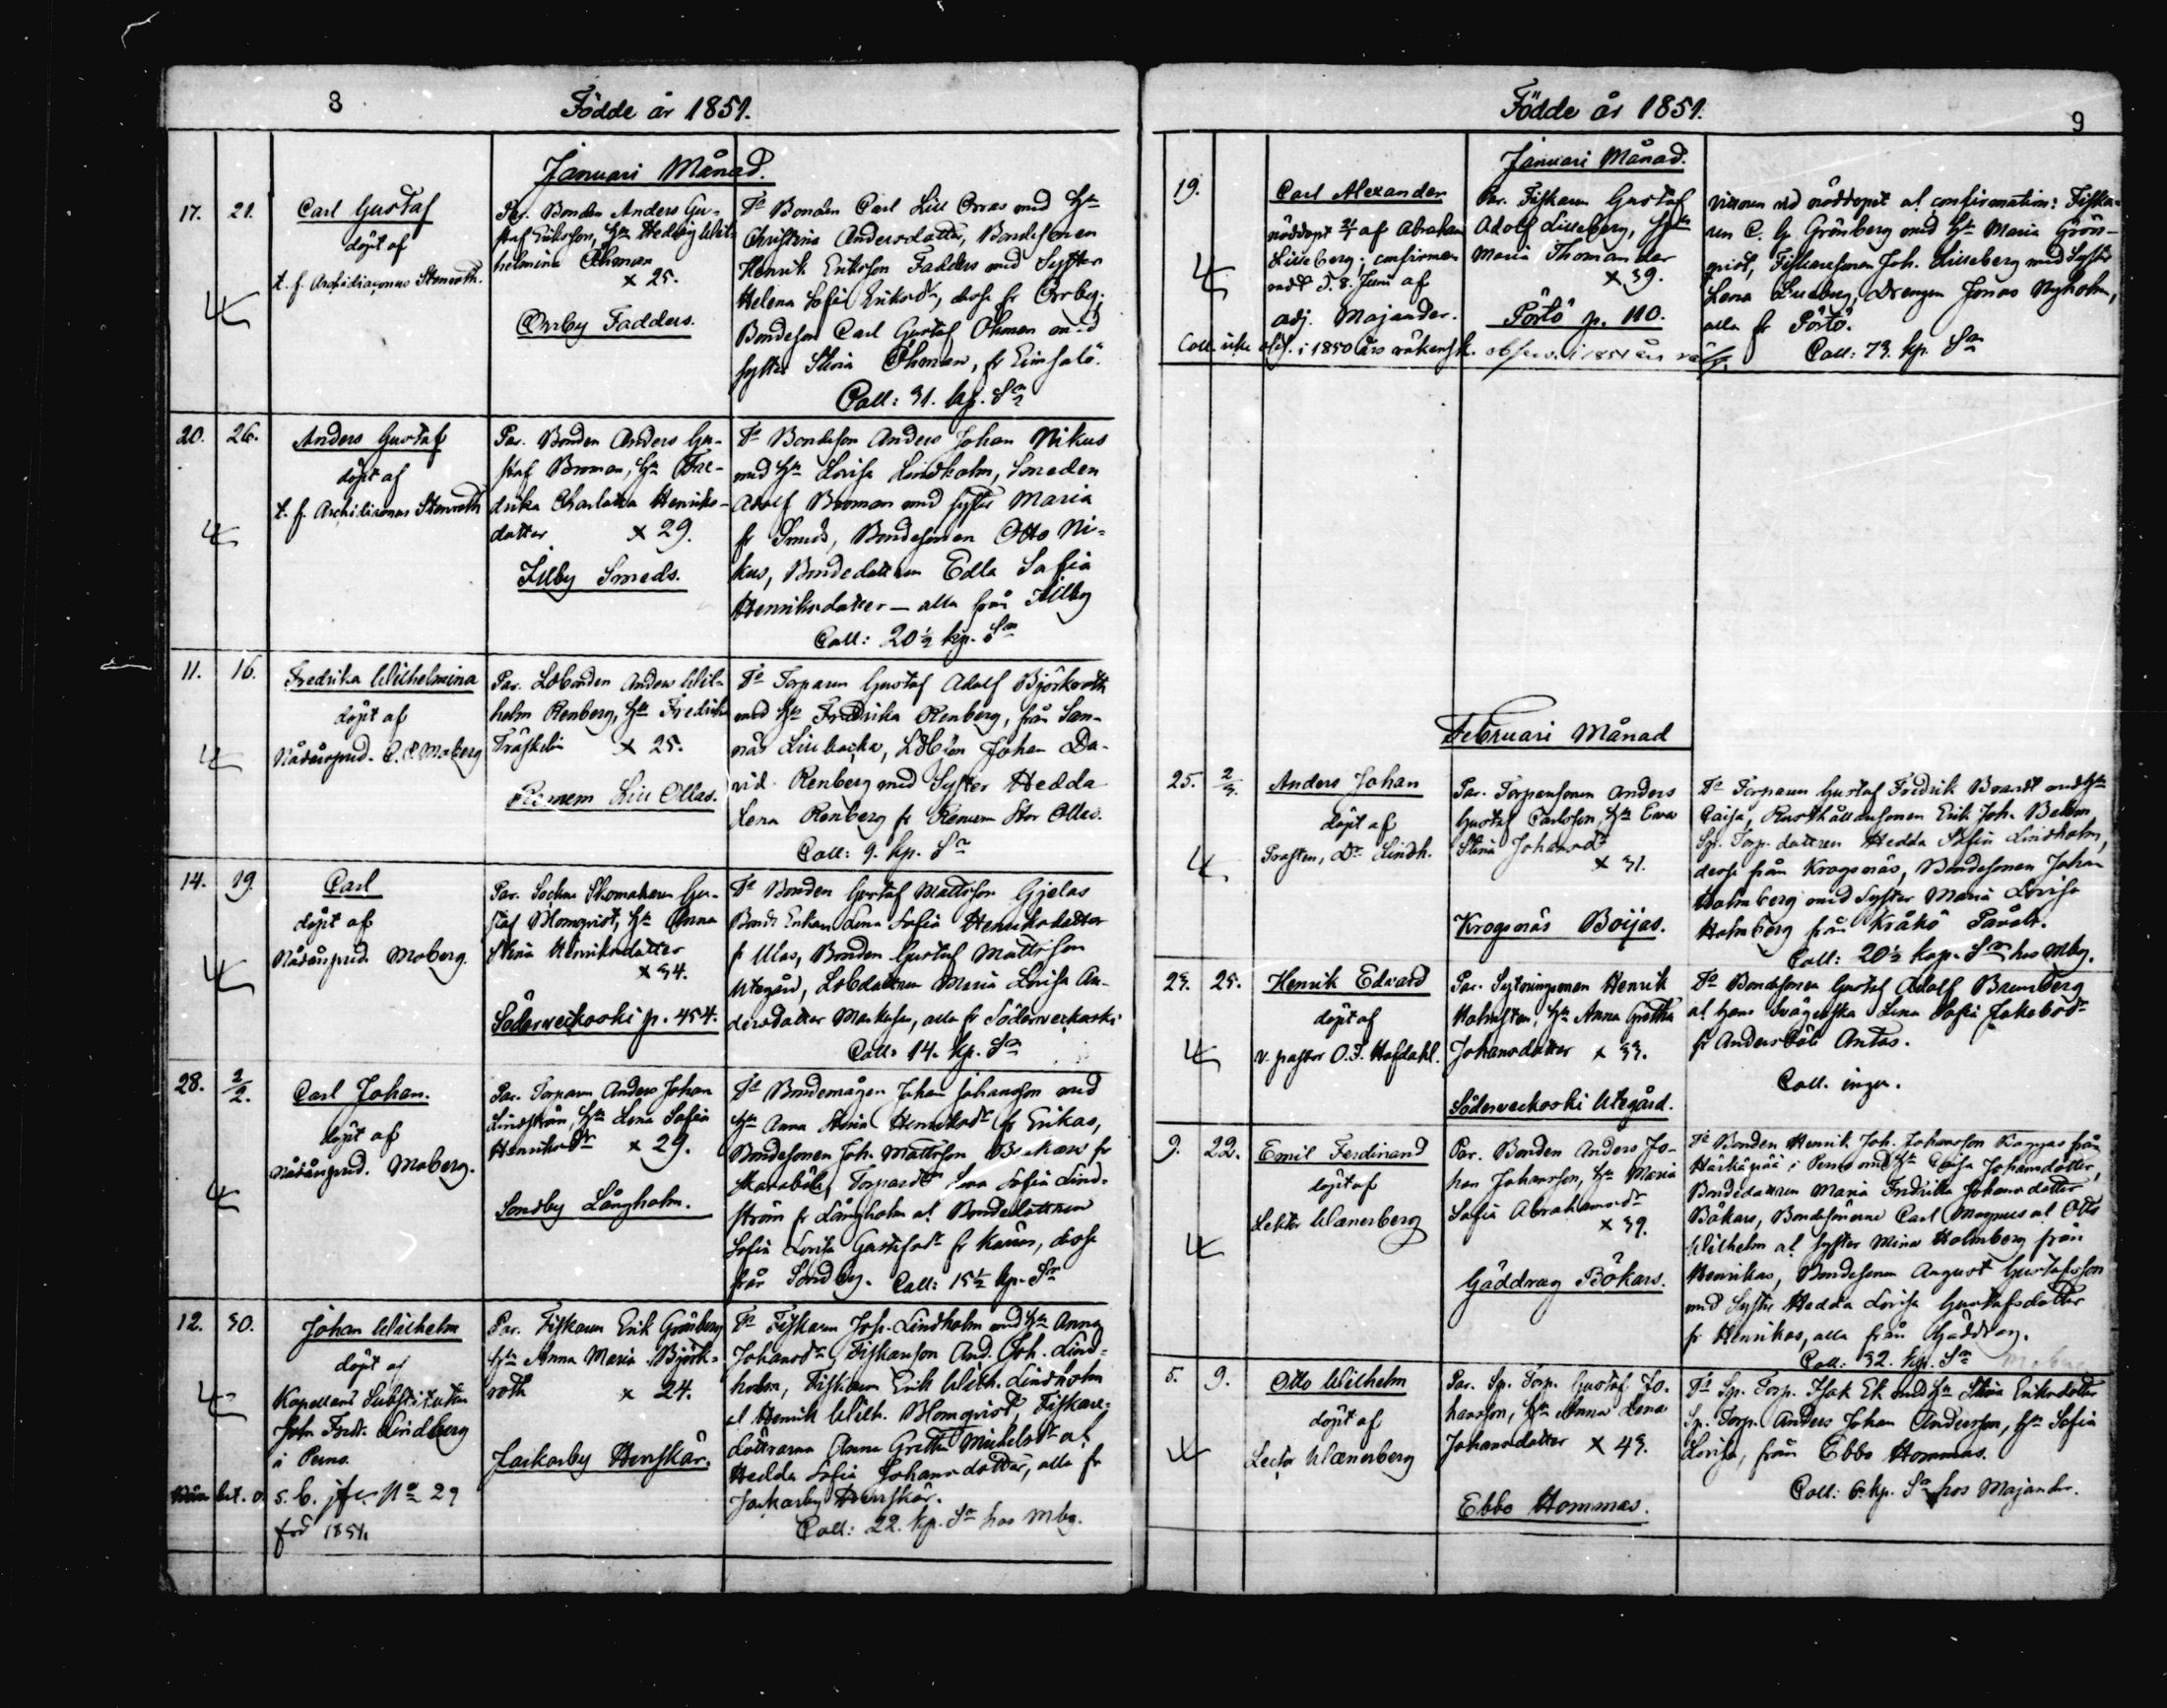 8
Födde år 1851.
Januari Månad.
17. 21. Carl Gustaf
döpt af
t. f. Archidiaconus Stenroth.
Par. Bonden Anders Gu-
staf Eriksson, Hu Hedvig Wil-
helmina Öhman
x 25.
Orrby Fadders.
Fa Bonden Carl Lill Orras med Hu
Christina Andersdatter, Bondesonen
Henrik Eriksson Fadders med Syster
Helena Sofia Eriksdr, desse fr Orrby;
Bondeson Carl Gustaf Öhman med
syster Stina Öhman, fr Eimsalö.
Coll: 31. kp. Sr
20. 26. Anders Gustaf
döpt af
t. f. Archidiaconus Stenroth
Par. Bonden Anders Gu-
staf Broman, Hu Fre-
drika Charlotta Henriks-
datter x 29.
Illby Smeds.
Fa Bondeson Anders Johan Nikus
med Hu Lovisa Lindholm, Smeden
Adolf Broman med syster Maria
fr Smeds, Bondesonen Otto Ni-
kus, Bondedattren Edla Sofia
Henriksdatter — alla från Illby
Coll: 20½ kp. Sr
11. 16. Fredrika Wilhelmina
döpt af
Nådårspred. C. E. Moberg
Par. Ldbonden Anders Wil-
helm Renberg, Hu Fredrika
Träskelin x 25.
Renum Lill Ollas.
Fa Torparen Gustaf Adolf Björkroth
med Hu Fredrika Renberg, från San-
näs Lillbacka, Ldbson Johan Da-
vid Renberg med Syster Hedda
Lena Renberg fr Renum Stor Ollas.
Coll: 9. kp. Sr
14. 19. Carl
döpt af
Nådårspred. Moberg.
Par. Sockne Skomakaren Gu-
staf Blomqvist, Hu Anna
Stina Henriksdatter
x 34.
Söderveckoski p. 454.
Fa Bonden Gustaf Mattsson Gjelas
Bonde Enkan Lena Sofia Henriksdatter
fr Ulas, Bonden Gustaf Mattsson
Utegård, Ldbdattren Maria Lovisa An-
dersdatter Markusas, alla fr Söderveckoski
Coll: 14. kp. Sr
28. 2/2. Carl Johan.
döpt af
Nådårspred. Moberg.
Par. Torparen Anders Johan
Lindström, Hu Lena Sofia
Henriksdr x 29.
Sondby Långholm.
Fa Bondemågen Johan Johansson med
Hu Anna Stina Henriksdr fr Erikas,
Bondesonen Joh. Mattsson Backars fr
Skarabäle, Torpardr Lena Sofia Lind-
ström fr Långholm at Bondedattren
Sofia Lovisa Gustafsdr fr Karras, desse
från Sondby. Coll: 15½ kp. Sr
12. 30. Johan Wilhelm
döpt af
Kapellans Substituten
John Fredr. Lindberg
i Perno.
s. b. jfr No 29
född 1851.
Par. Fiskaren Erik Grönberg
Hu Anna Maria Björk-
roth x 24.
Jackarby Henskär.
Fa Fiskaren Joh. Lindholm med Hu Anna
Johansdr, Fiskarson And. Joh. Lind-
holm, Fiskaren Erik Wilh. Lindholm
at Henrik Wilh. Blomqvist, Fiskare-
döttrarna Anna Gretha Michelsdr at
Hedda Sofia Johansdotter, alla fr
Jackarby Henskär.
Coll: 22. kp. Sr hos Mbg.
Födde år 1851.
9
Januari Månad.
19. Carl Alexander
nöddöpt 21/1 af Abraham
Lilleberg; confirme-
radt d. 8. Juni af
Adj. Majander.
Par. Fiskaren Gustaf
Adolf Lilleberg, Hu
Maria Thomander
x 39.
Pörtö p. 110.
Vittnen vid nöddopet at confirmation: Fiska-
ren C. G. Grönberg med Hu Maria Grön-
qvist, Fiskaresonen Joh. Lilleberg med Syster
Lena Lilleberg, Drengen Jonas Nyholm,
alla fr Pörtö.
Coll: 73. kp. Sr
Coll. icke i 1850 års räkensk. observ. i 1851 års
Februari Månad
25. 2/3. Anders Johan
döpt af
Prosten, Dr. Lindh.
Par. Torparesonen Anders
Gustaf Carlsson, Hu Eva
Stina Johansdr
x 31.
Krogsnäs Boijas.
Fa Torparen Gustaf Fredrik Brandt med Hu
Caisa, Rusthållaresonen Erik Joh. Belom
Sp. Torp. dattren Hedda Sofia Lindholm,
desse från Krogsnäs, Bondesonen Johan
Holmberg med Syster Maria Lovisa
Holmberg från Kråkö Påvals.
Coll: 20½ kop. Sr hos Mbg.
23. 25. Henrik Edvard
döpt af
v. pastor O. I. Hofdahl.
Par. Sytningsman Henrik
Holmsten, Hu Anna Gretha
Johansdatter x 33.
Söderveckoski Utegård.
Fa Bondesonen Gustaf Adolf Baumberg
at hans Svägerska Lena Sofia Jakobsdr
fr Andersböle Antas.
Coll. ingen.
9. 22. Emil Ferdinand
döpt af
Lektor Wænerberg
Par. Bonden Anders Jo-
han Johansson, Hu Maria
Sofia Abrahamsdr
x 39.
Gäddrag Bökars.
Fa Bonden Henrik Joh. Johansson Kappas från
Härkäpää i Perno med Hu Caisa Johansdotter,
Bondedattren Maria Fredrika Johansdotter
Bökars, Bondesönerne Carl Magnus at Otto
Wilhelm at syster Mina Holmberg från
Henrikas, Bondesonen August Gustafsson
med Syster Hedda Lovisa Gustafsdotter
fr Henrikas, alla från Gäddrag.
Coll: 32. kp. Sr Moberg
5. 9. Otto Wilhelm
döpt af
Lector Wænerberg
Par. Sp. Torp. Gustaf Jo-
hansson, Hu Anna Lena
Johansdotter x 43.
Ebbo Hommas.
Fa Sp. Torp. Isak Ek med Hu Stina Eriksdotter
Sp. Torp. Anders Johan Andersson, Hu Sofia
Lovisa, från Ebbo Hommas.
Coll: 6. kp. Sr hos Majander.